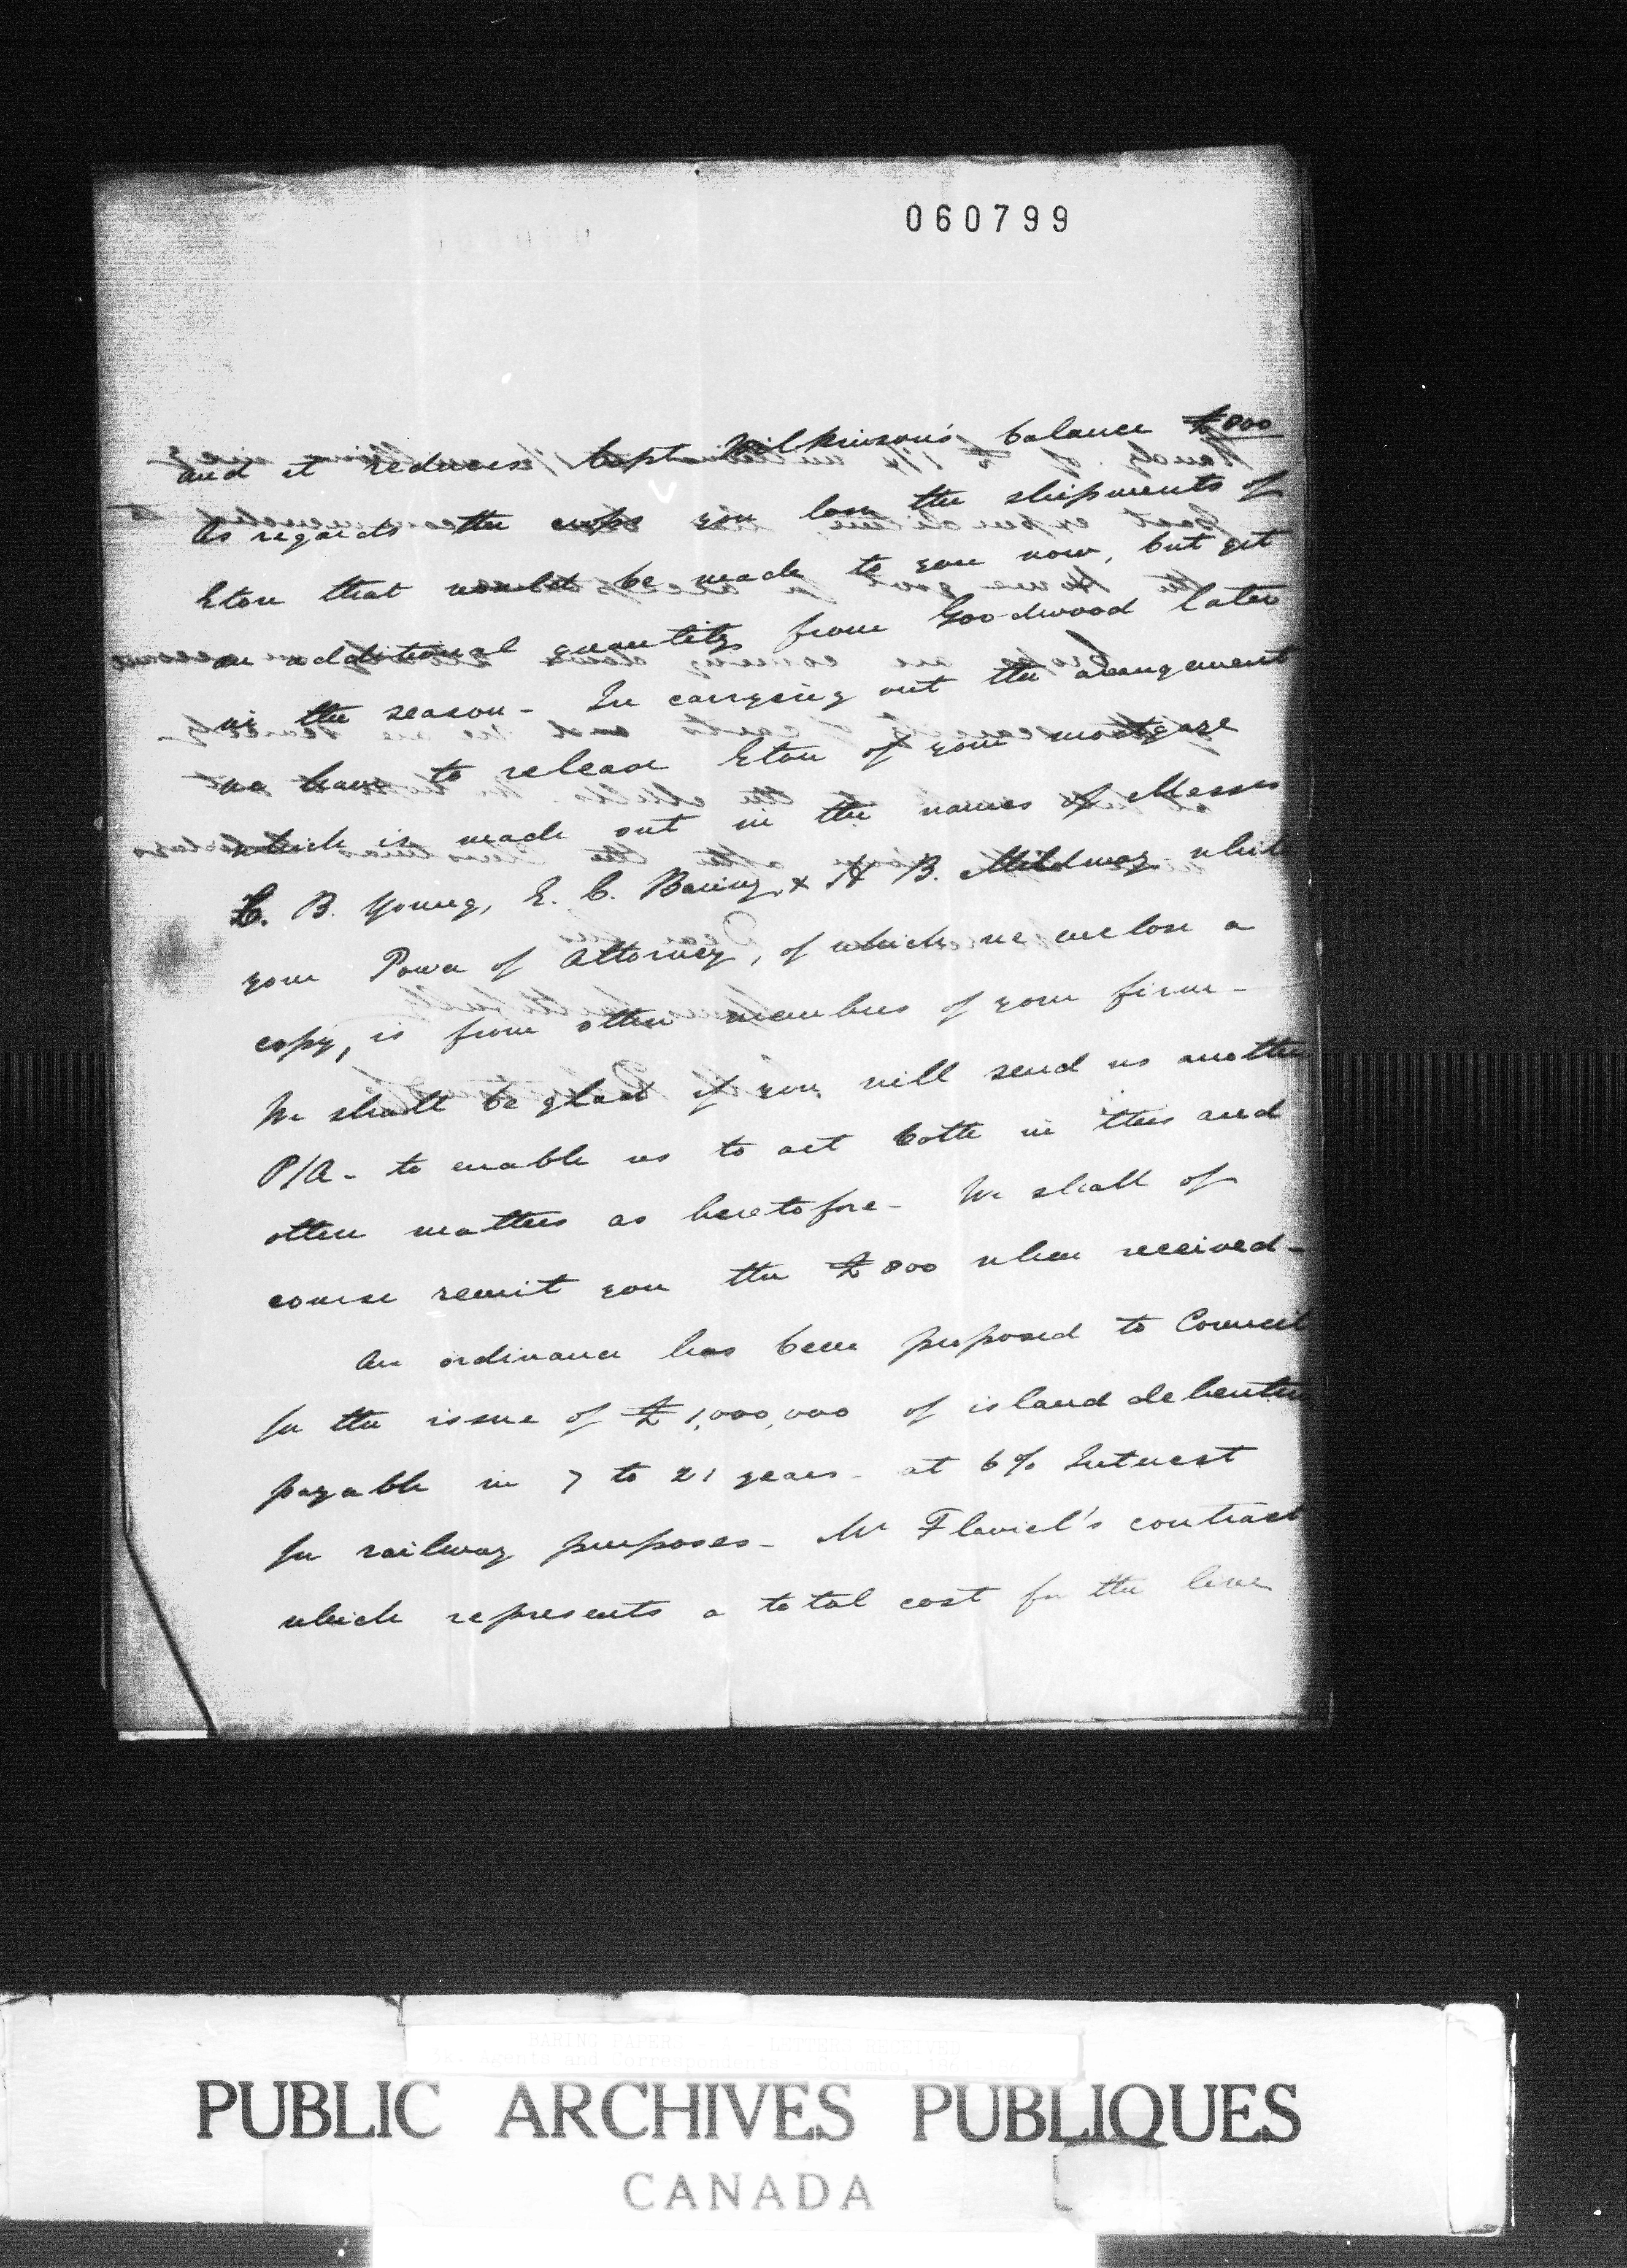 060799
and it reduces Capt Wilkinson's balance £800
As regards the crops you lose the shipments of
Eton that would be made to you now, but get
an additional quantity from Goodwood later
in the season - In carrying out the arangement
we have to release Eton of your mortgage
which is made out in the names of Messrs
C. B. Young, E. C. Baring, & H B. Mildmay - while
your Power of Attorney, of which we enclose a
copy, is from other members of your firm -
We shall be glad if you will send us another
P/A - to enable us to act both in this and
other matters as heretofore - We shall of
course remit you the £800 when received -
An ordinance has been proposed to Council
for the issue of £1,000,000 of island debentures
payable in 7 to 21 years - at 6% Interest
for railway purposes - Mr Flaviel's contract
which represents a total cost for the line
PUBLIC ARCHIVES PUBLIQUES
CANADA